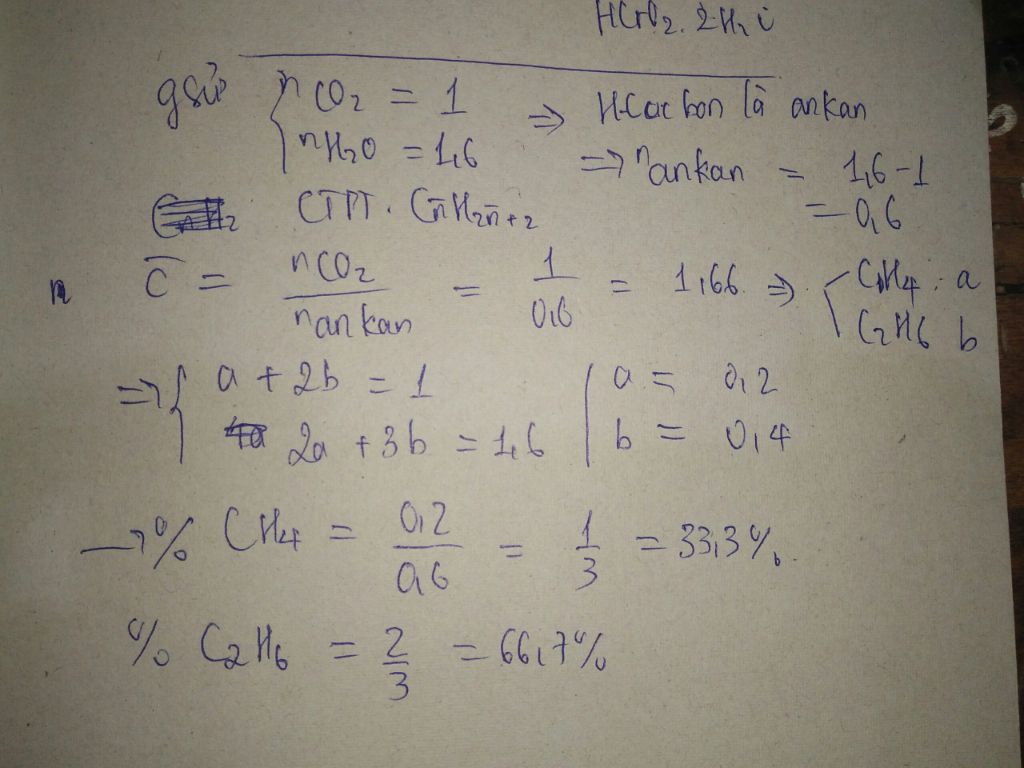 HCrO2.2H2
gsử { nCO2 = 1 ⇒ Hđcacbon là ankan
nH2O = 1,6 ⇒ nankan = 1,6 - 1
= 0,6
CTPT. Cn̄H2n̄+2
C̄ = nCO2 / nankan = 1 / 0,6 = 1,66 ⇒ { CH4 : a
C2H6 b
⇒ { a + 2b = 1 { a = 0,2
2a + 3b = 1,6 b = 0,4
→ % CH4 = 0,2 / 0,6 = 1 / 3 = 33,3%.
% C2H6 = 2 / 3 = 66,7%